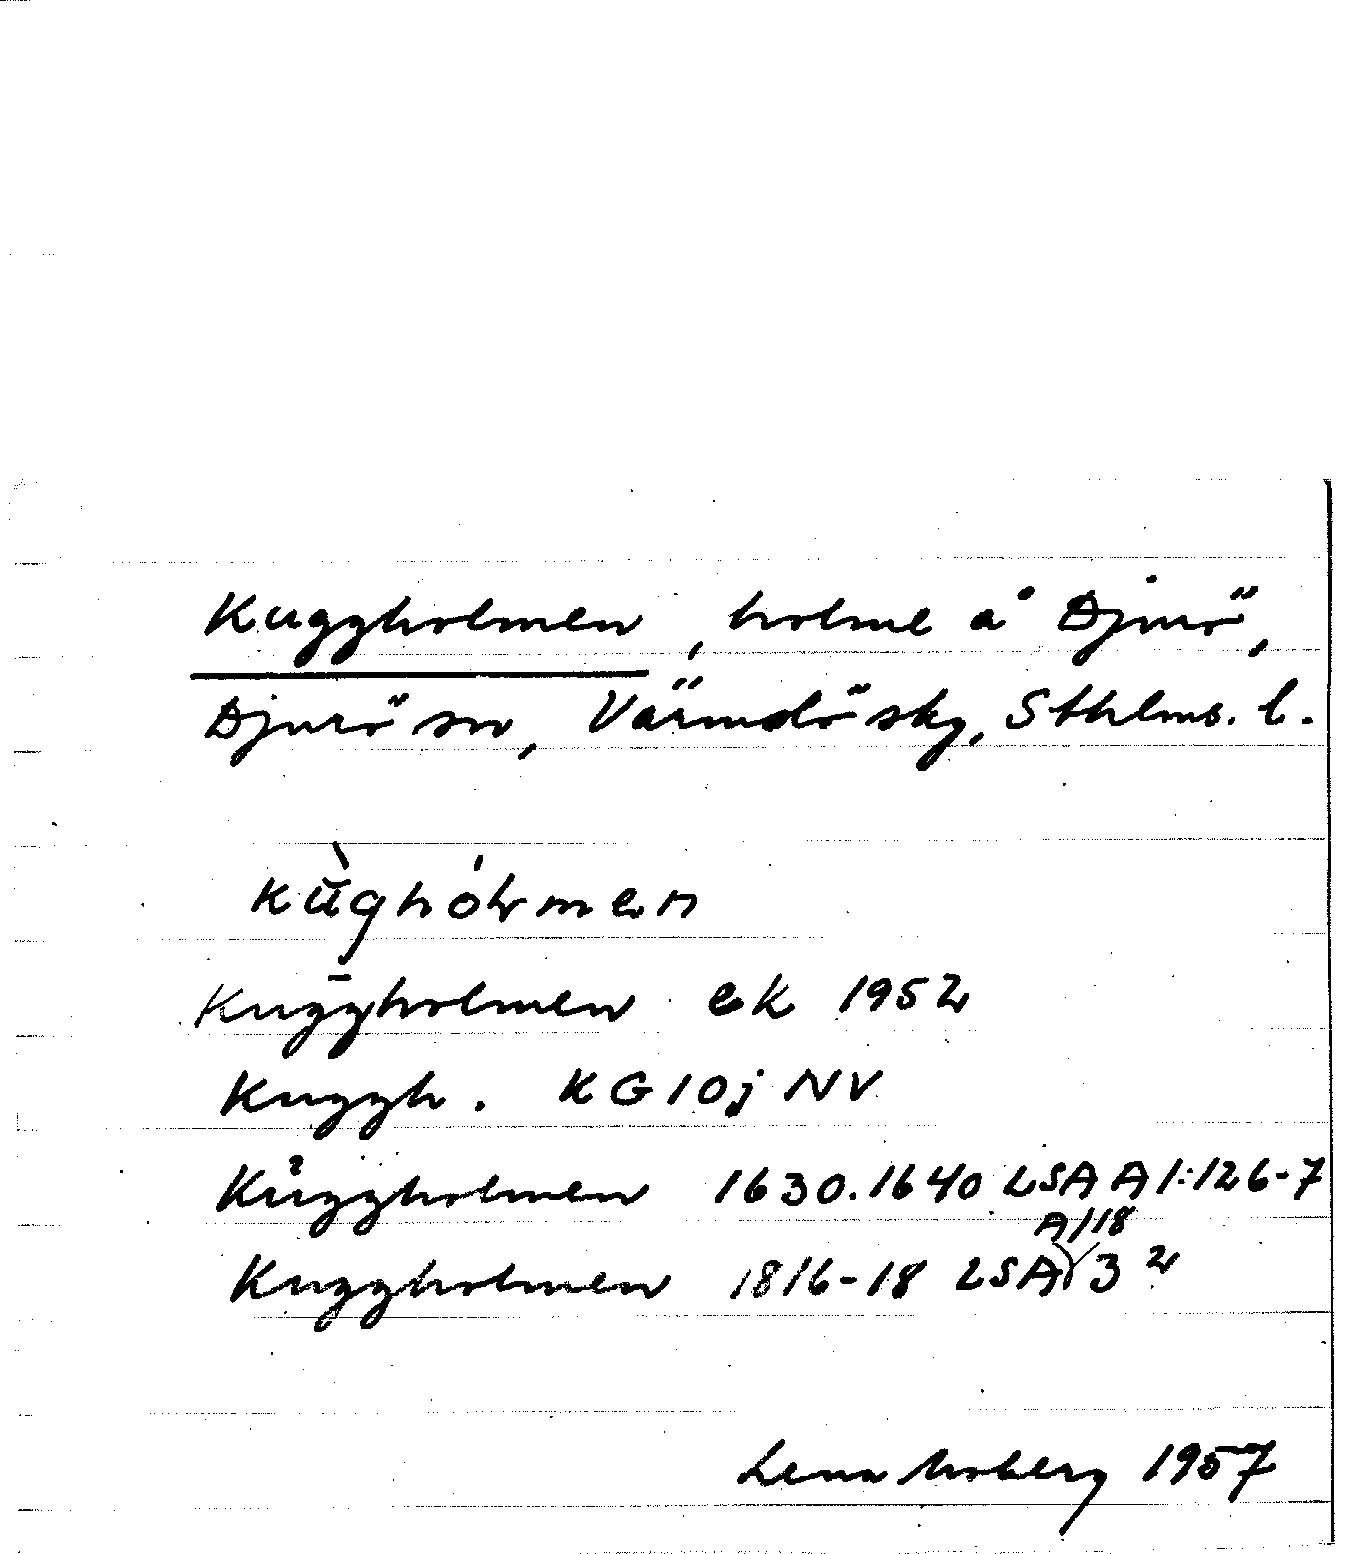 Kuggholmen, holme å Djurö,
Djurö sn, Värmdö sky, Sthlms. l.
kùghólmen
Kuggholmen ek 1952
Kuggh. KG 10j NV
Kůggholmen 1630.1640 LSA A1:126-7
A118
Kuggholmen 1816-18 LSA 3²
Lena Moberg 1957